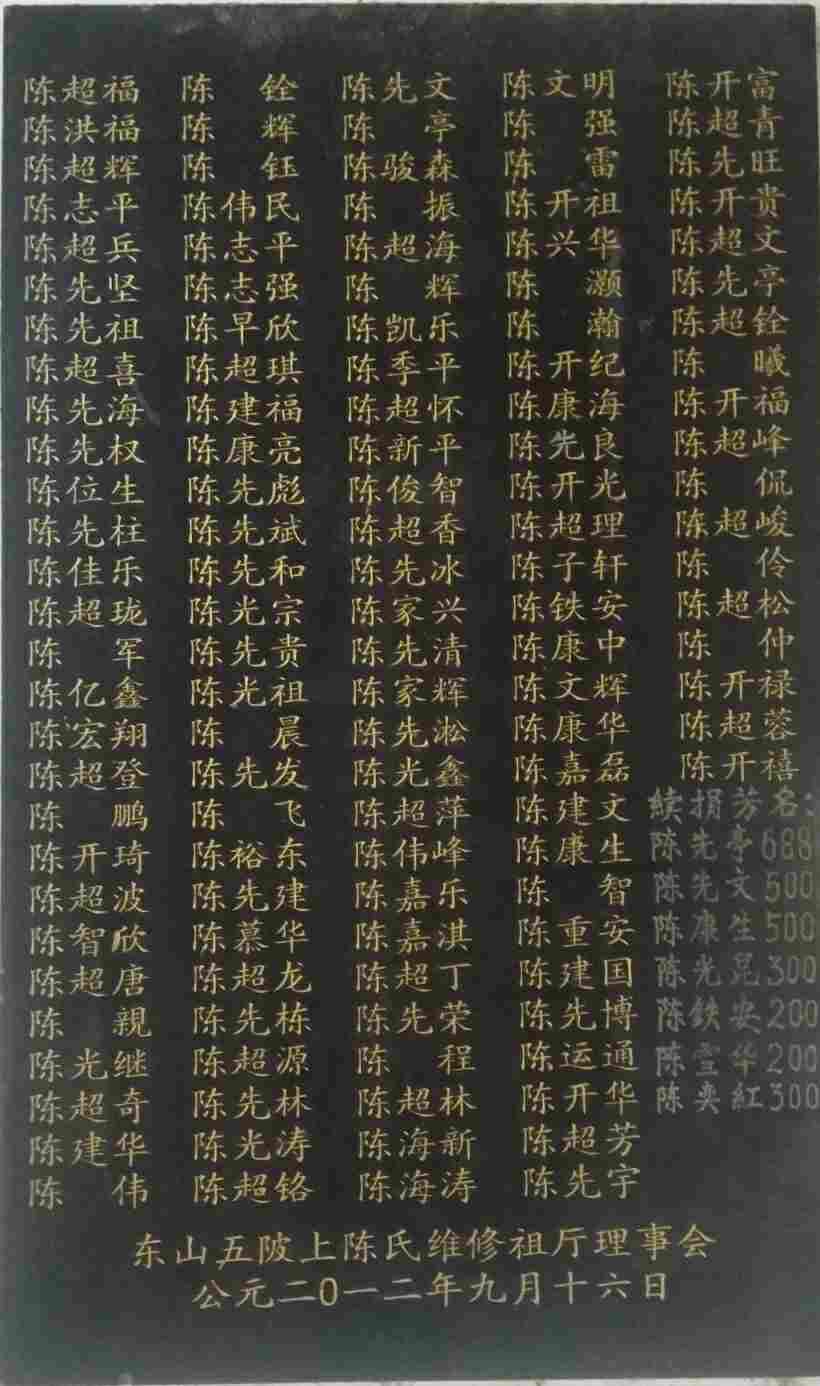 陈超福
陈洪福
陈超辉
陈志平
陈超兵
陈先坚
陈先祖
陈超喜
陈先海
陈先权
陈位生
陈先柱
陈佳乐
陈超珑
陈军
陈亿鑫
陈宏翔
陈超登
陈鹏
陈开琦
陈超波
陈智欣
陈超唐
陈親
陈光继
陈超奇
陈建华
陈伟
陈铨
陈辉
陈钰
陈伟民
陈志平
陈志强
陈早欣
陈超琪
陈建福
陈康亮
陈先彪
陈先斌
陈先和
陈光宗
陈先贵
陈光祖
陈晨
陈先发
陈飞
陈裕东
陈先建
陈慕华
陈超龙
陈先栋
陈超源
陈先林
陈光涛
陈超铭
陈先文
陈亭
陈骏森
陈振
陈超海
陈辉
陈凯乐
陈季平
陈超怀
陈新平
陈俊智
陈超香
陈先冰
陈家兴
陈先清
陈家辉
陈先淞
陈光鑫
陈超萍
陈伟峰
陈嘉乐
陈嘉淇
陈超丁
陈先荣
陈程
陈超林
陈海新
陈海涛
陈文明
陈强
陈雷
陈开祖
陈兴华
陈灏
陈瀚
陈开纪
陈康海
陈先良
陈开光
陈超理
陈子轩
陈铁安
陈康中
陈文辉
陈康华
陈嘉磊
陈建文
陈康生
陈智
陈重安
陈建国
陈先博
陈运通
陈开华
陈超芳
陈先宇
陈开富
陈超青
陈先旺
陈开贵
陈超文
陈先亭
陈超铨
陈曦
陈开福
陈超峰
陈侃
陈超峻
陈伶
陈超松
陈仲
陈开禄
陈超蓉
陈开禧
续捐芳名:
陈先亭688
陈先文500
陈康生500
陈光昆300
陈鉄安200
陈雪华200
陈奕紅300
东山五陂上陈氏维修祖厅理事会
公元二0一二年九月十六日